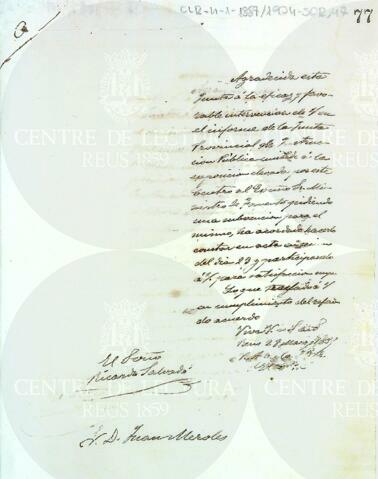 CLR-11-1-1887/1904-SCR,47
77
Agradecida esta
Junta á la eficaz y favo-
rable intervencion de V en
el informe de la Junta
Provincial de Instruc-
cion Pública emitido á la
exposicion elevada por este
Centro al Excmo Sr Mi-
nistro de Fomento pidiendo
una subvencion para el
mismo, ha acordado hacerlo
constar en acta
del dia 23 y participarlo
á V. para satisfaccion suya
Lo que traslado á V
en cumplimiento del
do acuerdo
Reus 28 Marzo
El Srio
Ricardo Salvadó
Sr. D. Juan Meroles
CENTRE DE LECTURA
REUS 1859